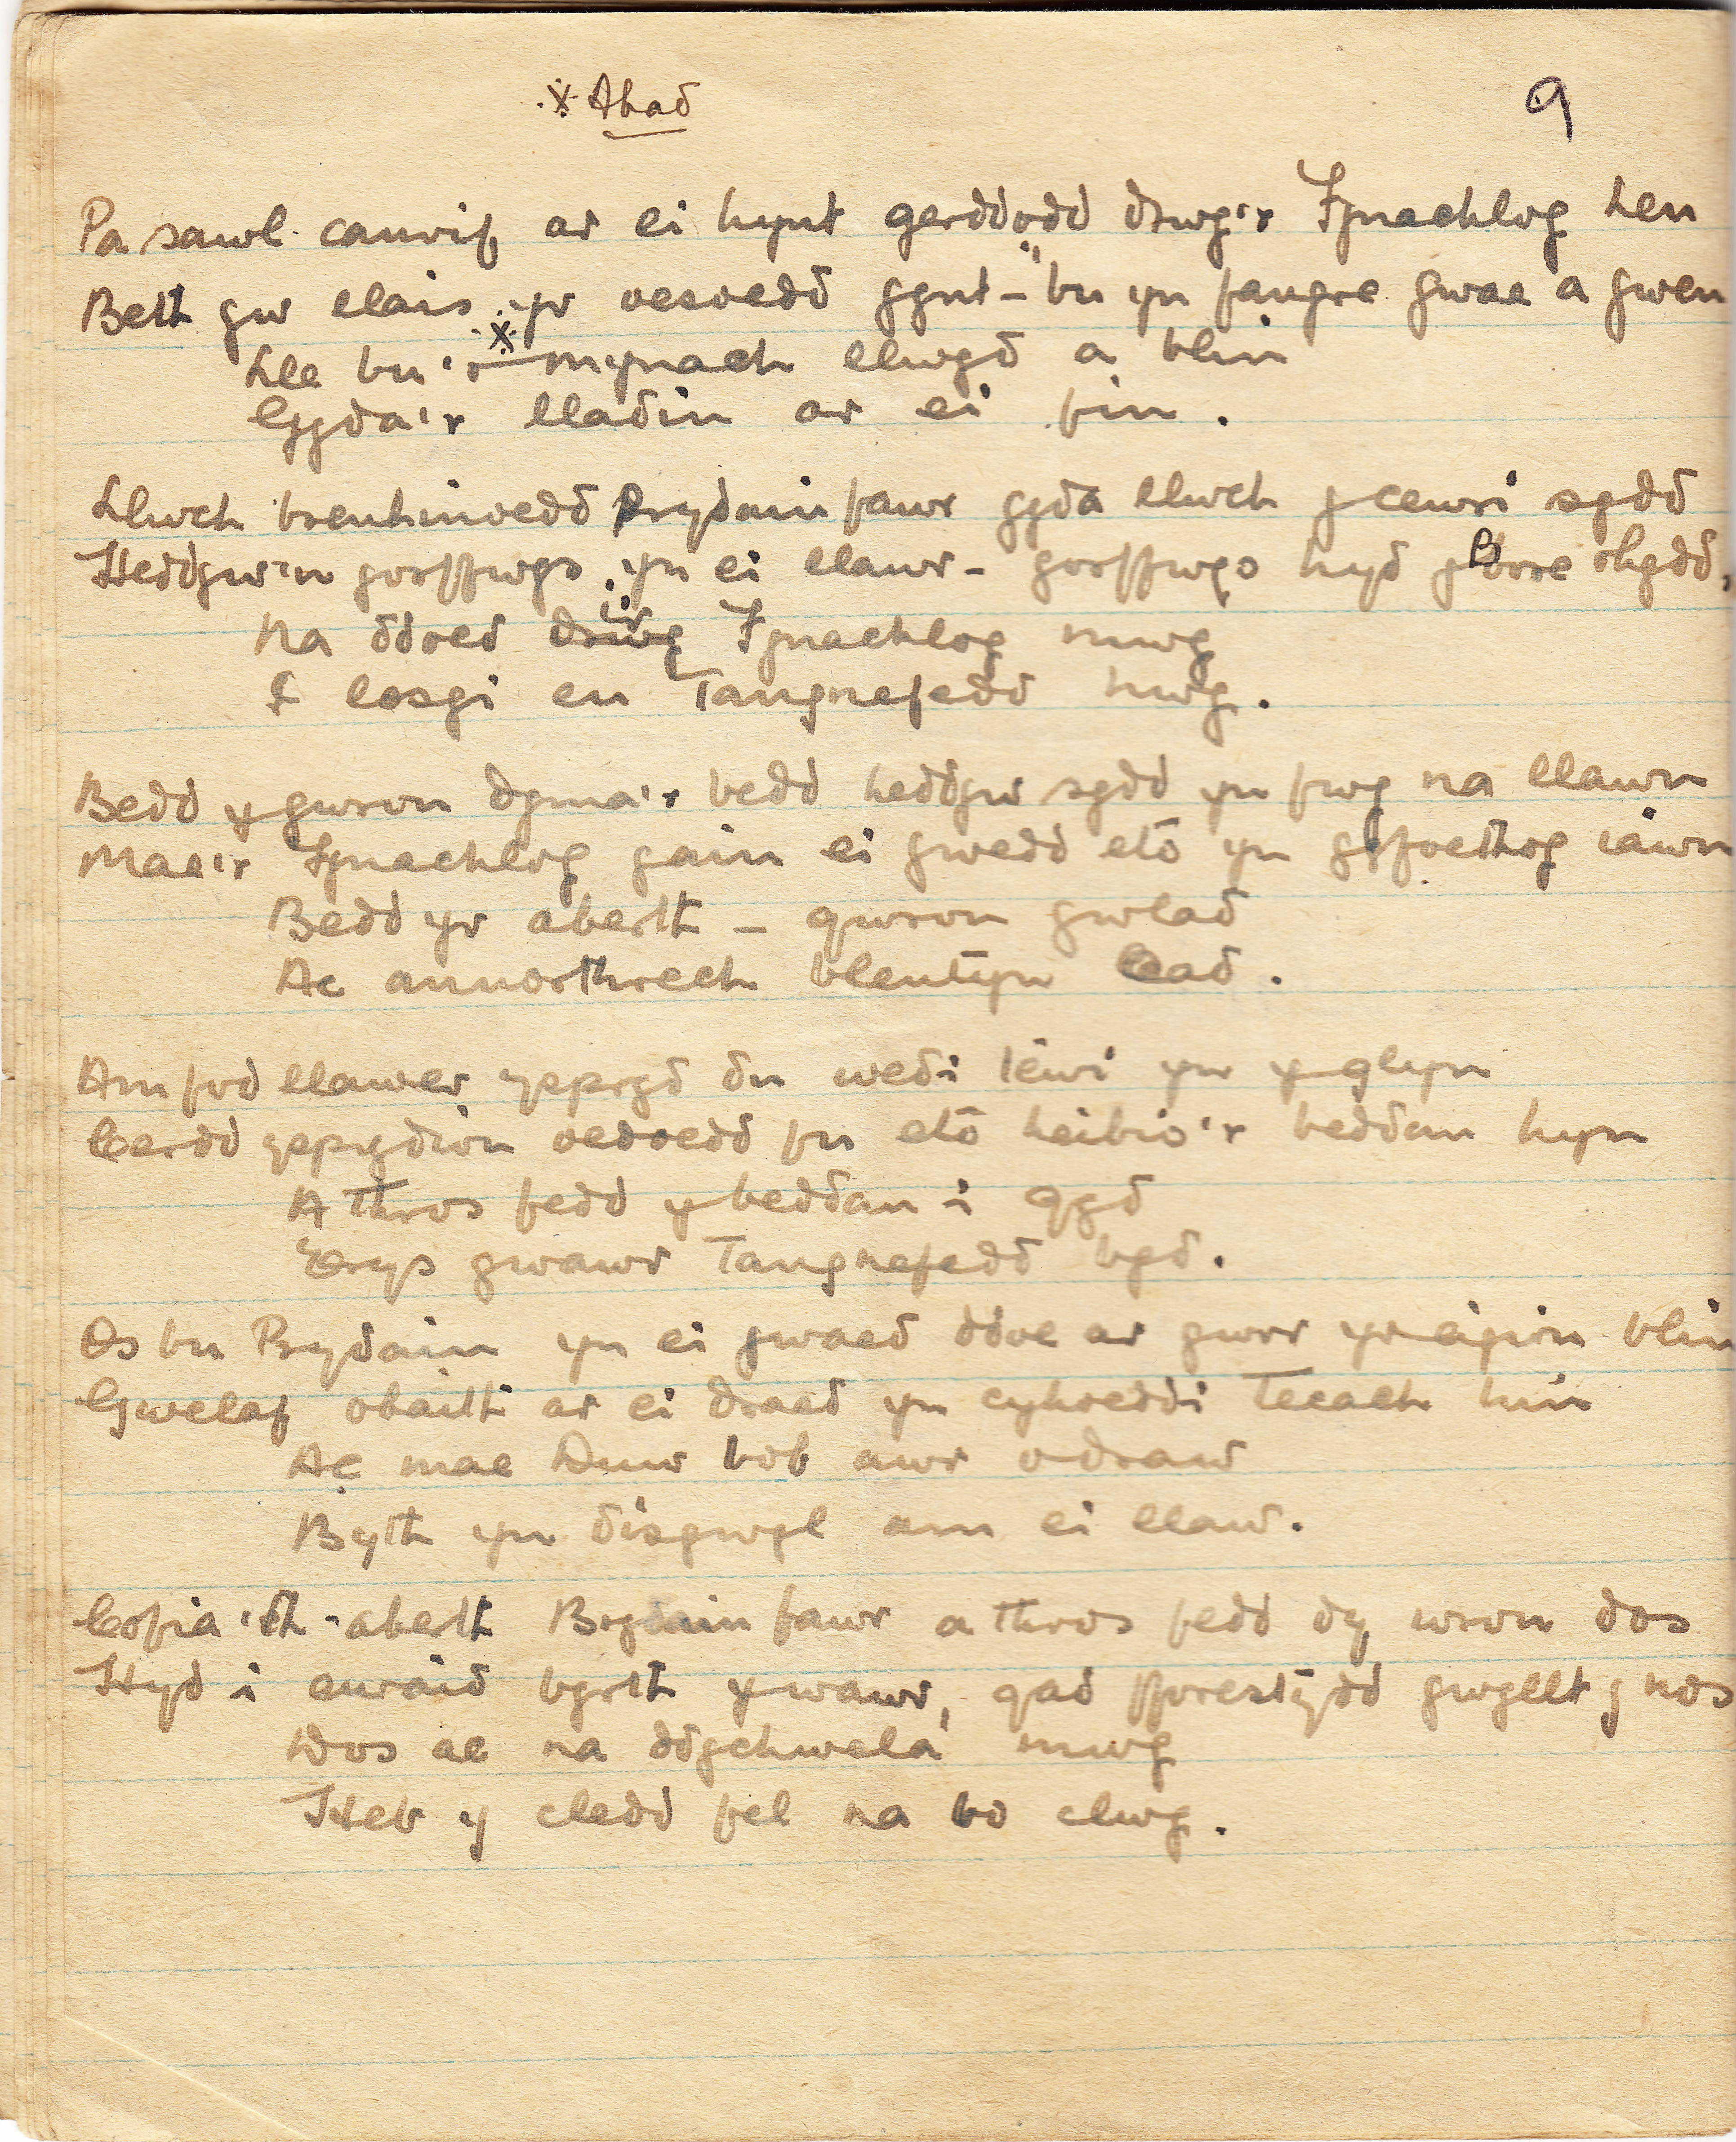 * Abad
9
Pa sawl canrif ar ei hynt gerddodd drwy'r Fynachlog hen
Beth yw llais yr oesoedd gynt - bu yn fangre gwae a gwen
Lle bu'r * mynach llwyd a blin
Gyda'r lladin ar ei fin.
Llwch brenhinoedd Prydain fawr gyda llwch y cewri sydd
Heddyw'n gorffwys yn ei llawr - gorffwys hyd y Bore rhydd,
Na ddoed drwy i'r Fynachlog mwy
I losgi eu Tangnefedd hwy.
Bedd y gwron dyma'r bedd heddyw sydd yn fwy na llawn
Mae'r Fynachlog gain ei gwedd eto yn gyfoethog iawn
Bedd yr aberth - gwron gwlad
Ac annorthrech blentyn Cad.
Am fod llawer yspryd du wedi tewi yn y glyn
Cerdd ysprydion oedoedd fu eto heibio'r beddau hyn
A thros fedd y beddau i gyd
Erys gwawr Tangnefedd byd.
Os bu Prydain yn ei gwaed ddoe ar gwrr yr eigion blin
Gwelaf obaith ar ei draed yn cyhoeddi Tecach hin
Ac mae Duw bob awr o draw
Byth yn disgwyl am ei llaw.
Cofia'th aberth Brydain fawr a thros fedd dy wron dos
Hyd i euraid byrth y wawr, gad fforestydd gwyllt y nos
Dos ac na ddychwela' mwy
Heb y cledd fel na bo clwy.